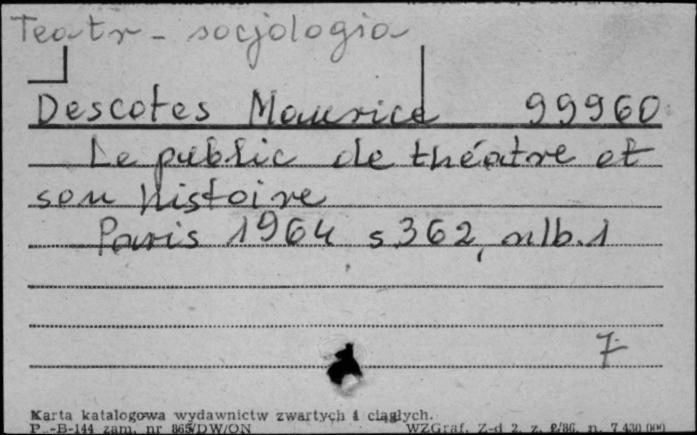 Teatr - socjologia
Descotes Maurice 99960
Le public de théatre et
son histoire
Paris 1964 s 362, nlb. 1
7
Karta katalogowa wydawnictw zwartych i ciągłych.
P..-B-144 zam. nr 865/DW/ON WZGraf. Z-d 2. z. 2/86. n. 7 430 000